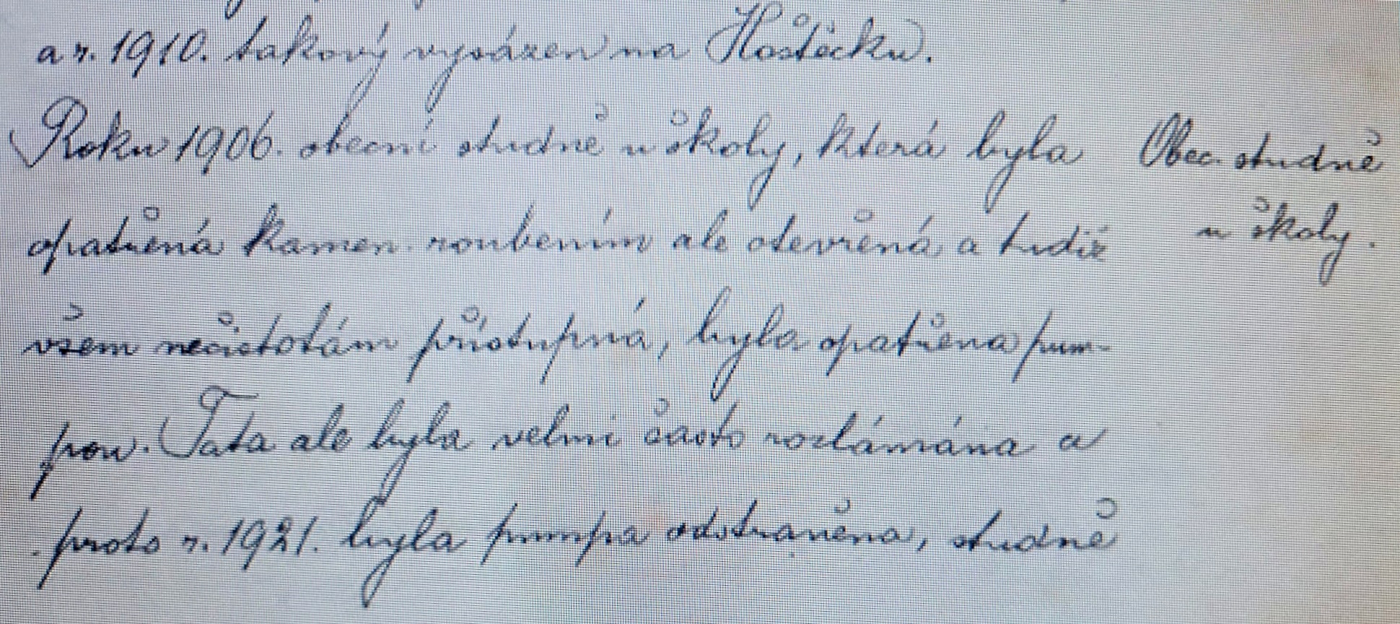 a r. 1910. takový vysázen na Hostěcku.
Roku 1906. obecní studně u školy, která byla
opatřená kamen. roubením ale otevřená, a tudíž
všem nečistotám přístupná, byla opatřena pum-
pou. Tata ale byla velmi často rozlámána a
proto r. 1921. byla pumpa odstraněna, studně
Obec. studně
u školy.